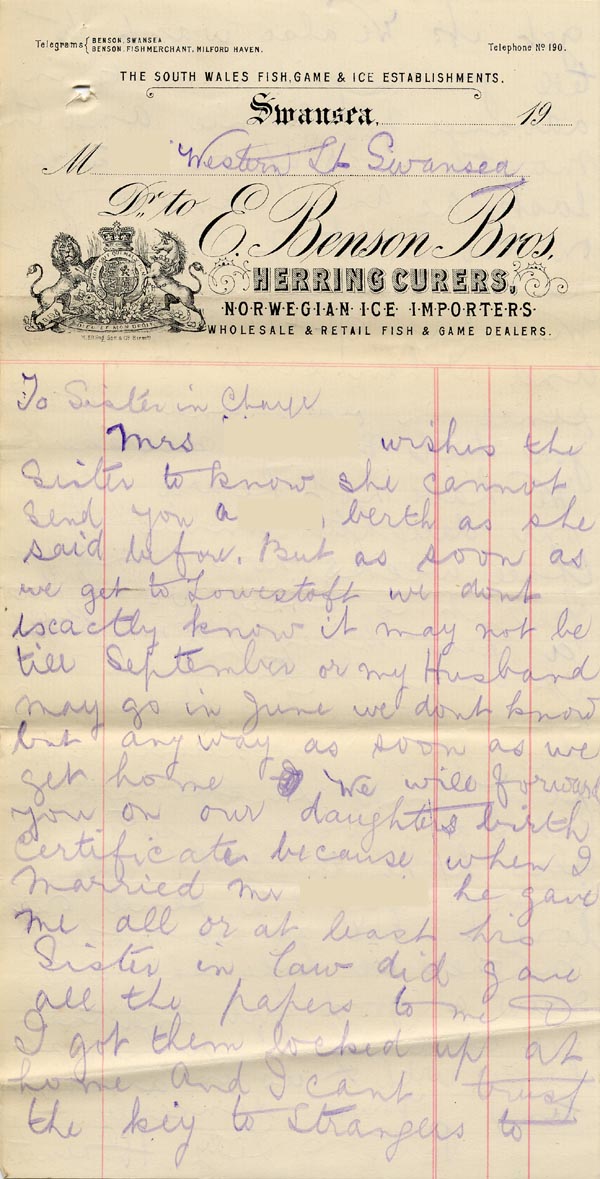 Telegrams { BENSON, SWANSEA.
BENSON, FISHMERCHANT, MILFORD HAVEN.
Telephone No 190.
THE SOUTH WALES FISH, GAME & ICE ESTABLISHMENTS.
Swansea, 19
M Western St Swansea
Dr. to E Benson Bros.
HERRING CURERS,
NORWEGIAN ICE IMPORTERS
WHOLESALE & RETAIL FISH & GAME DEALERS.
DIEU ET MON DROIT
To Sister in Charge
Mrs wishes the
Sister to know she cannot
send you a , berth as she
said before. But as soon as
we get to Lowestoft we dont
iscactly know it may not be
till September or my Husband
may go in June we dont know
but any way as soon as we
get home We will forward
you on our daughters birth
Certificate because when I
married Mr he gave
me all or at least his
Sister in law did gave
all the papers to me
I got them locked up at
home And I cant trust
the key to Strangers to